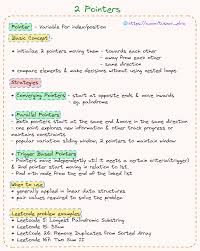 2 Pointers
Pointer - Variable for index/position
Basic Concept
• initialize 2 pointers moving them - towards each other
- away from each other
- same direction
• compare elements & make decisions without using nested loops
Strategies
• Converging Pointers - start at opposite ends & move inwards
eg. palindrome
• Parallel Pointers
Both pointers start at the same end & move in the same direction
one point explores new information & other track progress &
maintains constraints
popular variation sliding window, 2 pointers to maintain window
• Trigger Based Pointers
Pointers move independently util it meets a certain criteria(trigger)
& 2nd pointer start moving in relation to 1st.
Find nth node from the end of the linked list
When to use
• generally applied in linear data structures
• pair values required to solve the problem
Leetcode problem examples
• Leetcode 5: Longest Palindromic Substring
• Leetcode 15: 3 Sum
• Leetcode 26: Remove Duplicates from Sorted Array
• Leetcode 167: Two Sum II